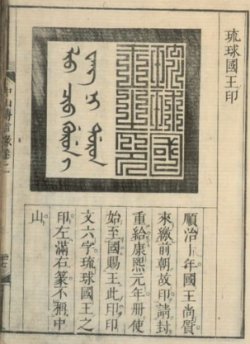 琉球國王印
琉球國
王之印
順治十一年國王尚質
來繳前朝故印請封
重給康熙元年冊使
始至國賜王此印印
文六字琉球國王之
印左滿右篆不稱中
山
中山傳信錄卷二